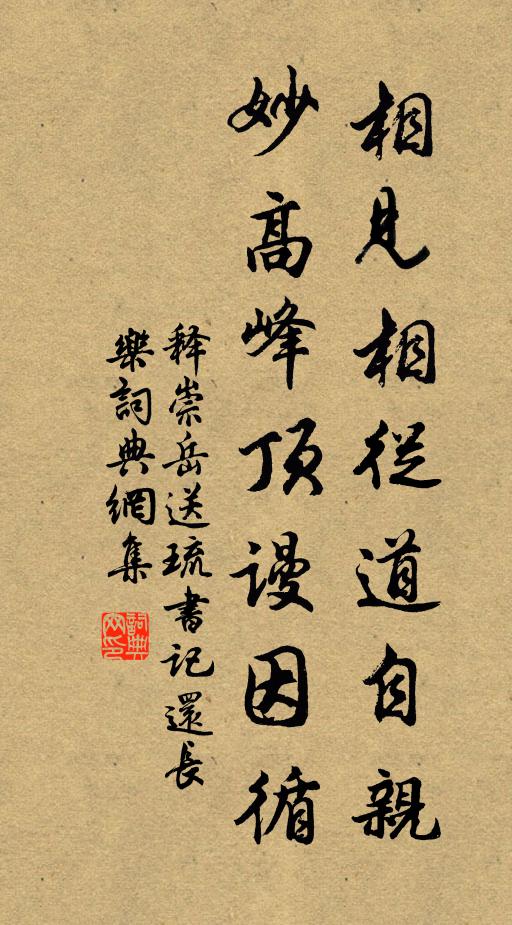 相見相從道自親
妙高峰頂謾因循
释崇岳送琉書記還長
樂詞典網集
詞典網印